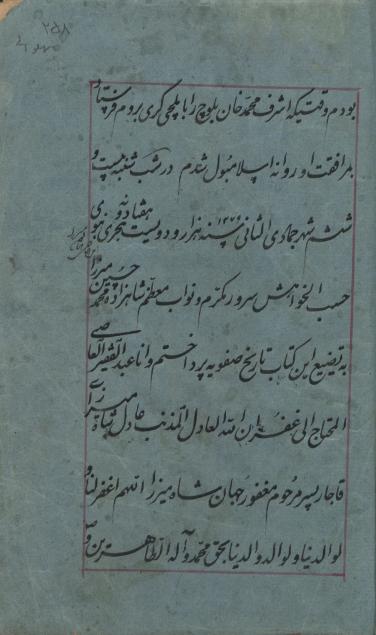 ۲۵۸
بودم وقتیکه اشرف محمد خان بلوچ را بایلچی کری بروم فرستاد
بمرافقت او روانه اسلامبول شدم در شب شنبه بیست و
ششم شهر جمادی الثانی ۱۲۷۹ سنه هزار و دویست هفتاد نه هجری نبوی
حسب الخواهش سرور مکرم و نواب معظم شاهزاده محمد حسین میرزا
به تضیع این کتاب تاریخ صفویه پرداختم وانا عبد الفقیر العاصی
المحتاج الی غفران الله العادل المذنب عادل شاه میرزای
قاجار پسر مرحوم مغفور جهان شاه میرزا اللهم اغفر لنا و
لوالدینا و لوالد والدینا بحق محمد وآله الطاهرین